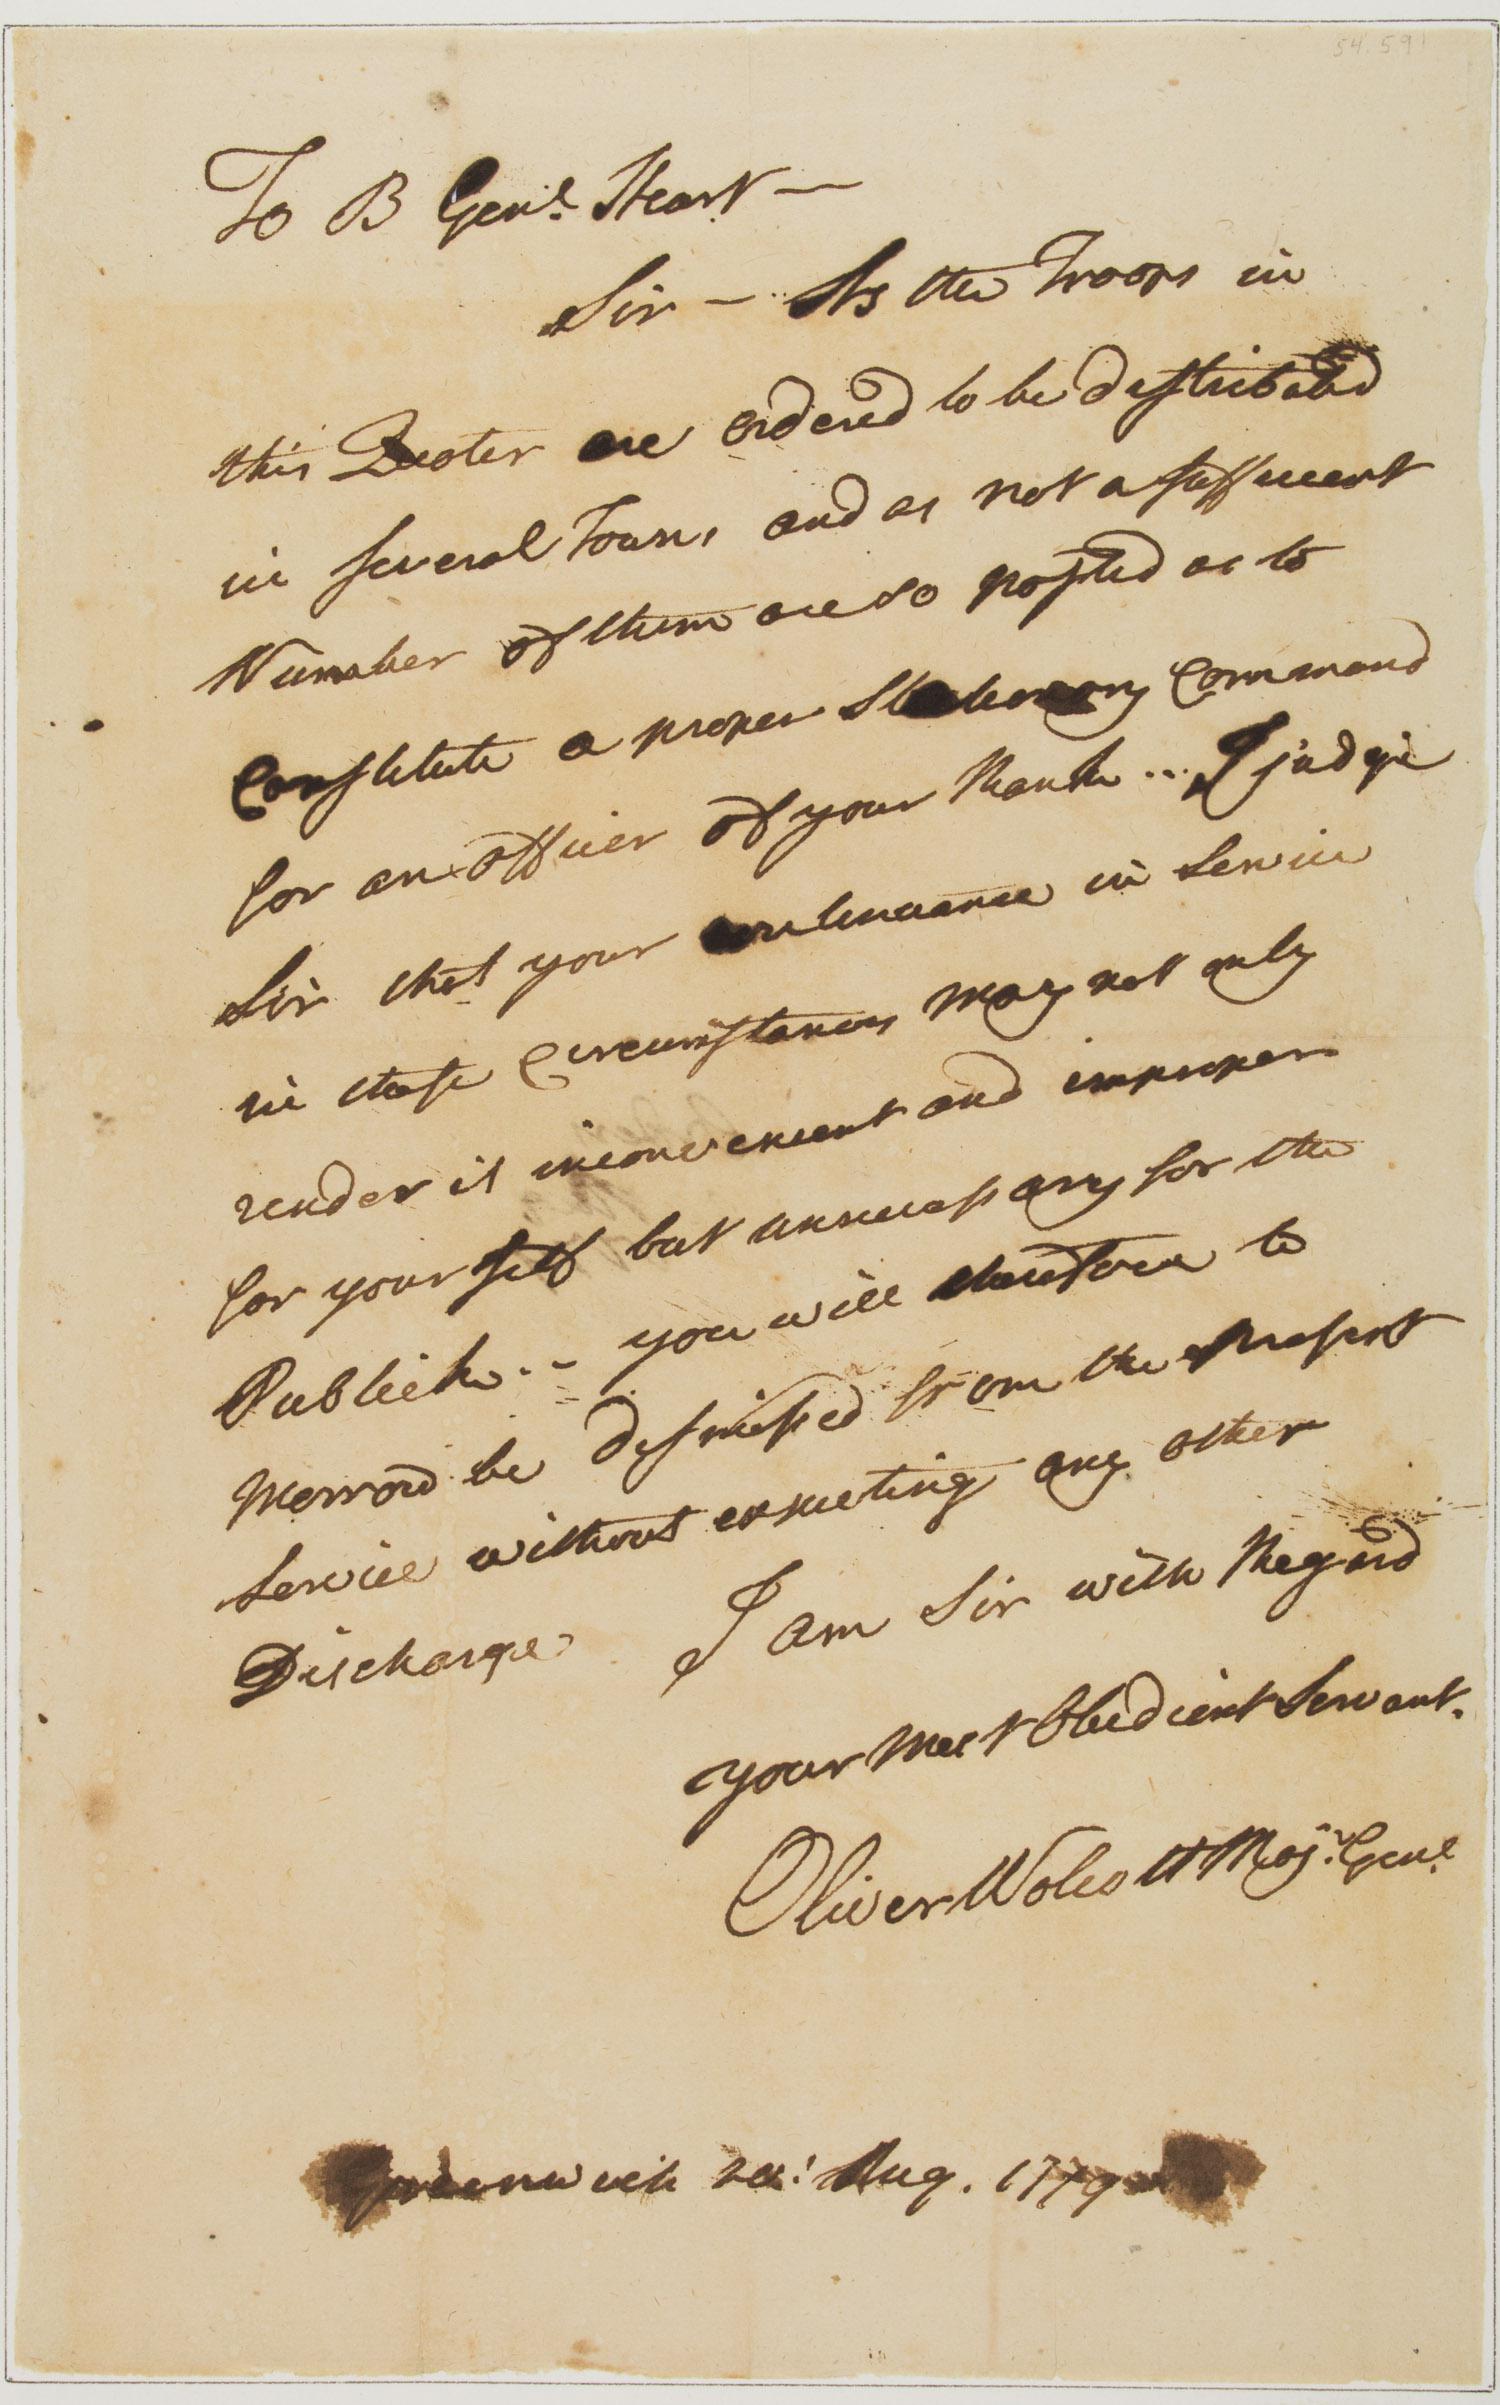 54.591
To B Genl. Heart —
Sir — As the Troops in
this Quater are ordered to be distributed
in several Towns and as not a sufficient
Number of them are so posted as to
Constitute a proper Stationary Command
for an officer of your Rank ... I judge
Sir that your continuance in Service
in these Circumstances may not only
render it inconvenient and improper
for yourself but unnecessary for the
Publick .. you will therefore to
Morrow be dismissed from the present
Service without expecting any other
Discharge I am Sir with Regard
your most Obedient Servant.
Oliver Wolcott Majr. Genl.
Greenwich Aug. 1779